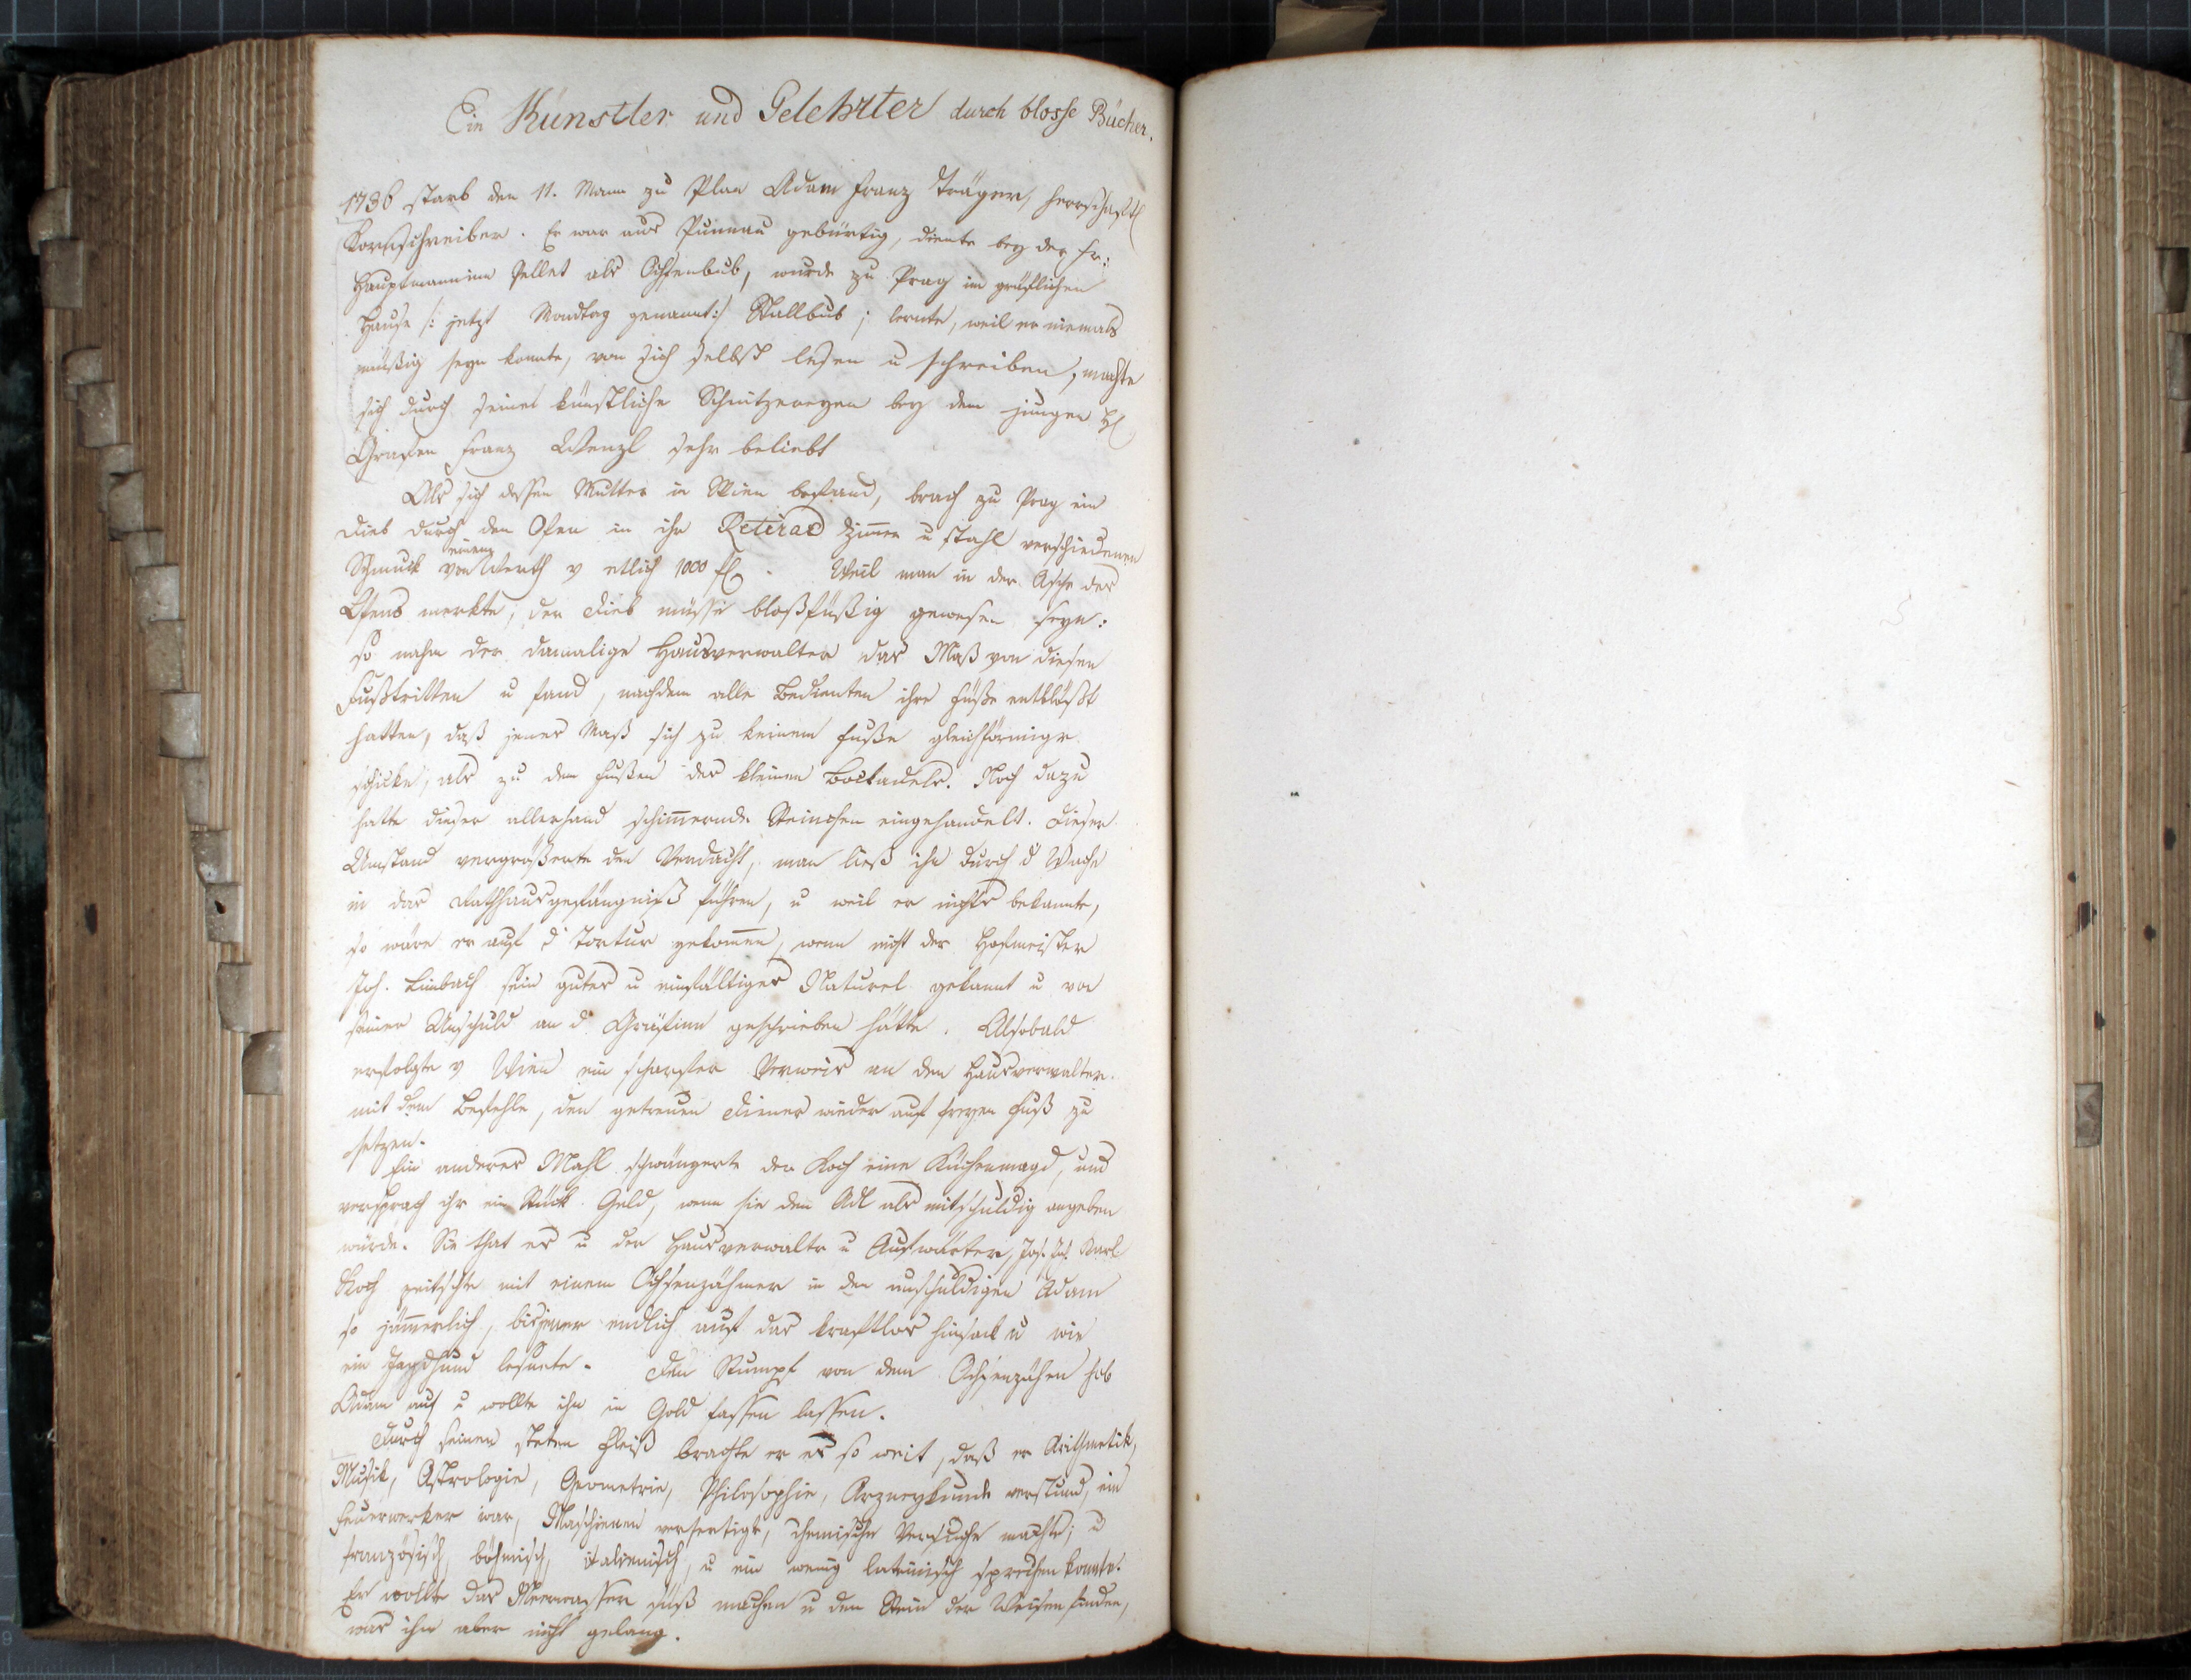 Ein Künstler und Gelehrter durch blosse Bücher.
1736 starb den 11. zu Plan Adam Franz Träger, herrschaftl
Kornschreiber. Er war aus Punnau gebürtig, diente bey der Fr:
Hauptmanninn als Ochsenbub, wurde zu Prag im gräflichen
Hause /: jetzt genannt :/ Stallbub; lernte, weil er niemals
müßig seyn konnte, von sich selbst lesen u schreiben, machte
sich durch seine künstliche Schnitzereyen bey dem jungen H
Grafen Franz Wenzl sehr beliebt
Als sich dessen Mutter in Wien befand, brach zu Prag ein
Dieb durch den Ofen in ihr Retirad Zimer u stahl verschiedenen
Schmuck von einem Werth v etlich 1000 fl. Weil man in der Asche des
Ofens merkte, der Dieb müsse bloßfüßig gewesen seyn:
so nahm der damalige Hausverwalter das Maß von diesen
Fußtritten u fand, nachdem alle Bedienten ihre Füße entblößt
hatten, daß jenes Maß sich zu keinem Fuße gleichförmiger
schicke, als zu den Füßen des kleinen. Noch dazu
hatte dieser allerhand schimernde Steinchen eingehandelt. Dieser
Umstand vergrößerte den Verdacht, man ließ ihn durch d Wache
in das Rathhausgefängniß führen, u weil er nichts bekannte,
so wäre er auf d Tortur gekomen, wenn nicht der Hofmeister
Joh. Limbach sein gutes u einfältiges Naturel gekannt u von
seiner Unschuld an d Gräfinn geschrieben hätte. Alsobald
erfolgte v Wien ein scharfer Verweis an den Hausverwalter
mit dem Befehle, den getreuen Diener wieder auf freyen Fuß zu
setzen.
Ein anderes Mahl schwängerte der Koch eine Küchenmagd, und
versprach ihr ein Stück Geld, wenn sie den Adl als mitschuldig angeben
würde. Sie that es u der Hausverwalter u Aufwärter, Karl
Koch peitschte mit einem Ochsenzähmer in den unschuldigen Adam
so jämerlich, bis jener endlich auf das kraftlos hinsank u wie
ein Jagdhund. Den Stumpf von dem Ochsenzähmer hob
Adam auf u wollte ihn in Gold fassen lassen.
Durch seinen steten Fleiß brachte er es so weit, daß er Arithmetik,
Musik, Astrologie, Geometrie, Philosophie, Arzneykunde verstund, ein
Feuerwerker war, Maschienen verfertigte, chemische Versuche machte; u
französisch, böhmisch, italienisch, u ein wenig lateinisch sprechen konnte.
Er wollte das Meerwasser süß machen u den Stein der Weisen finden,
was ihm aber nicht gelang.